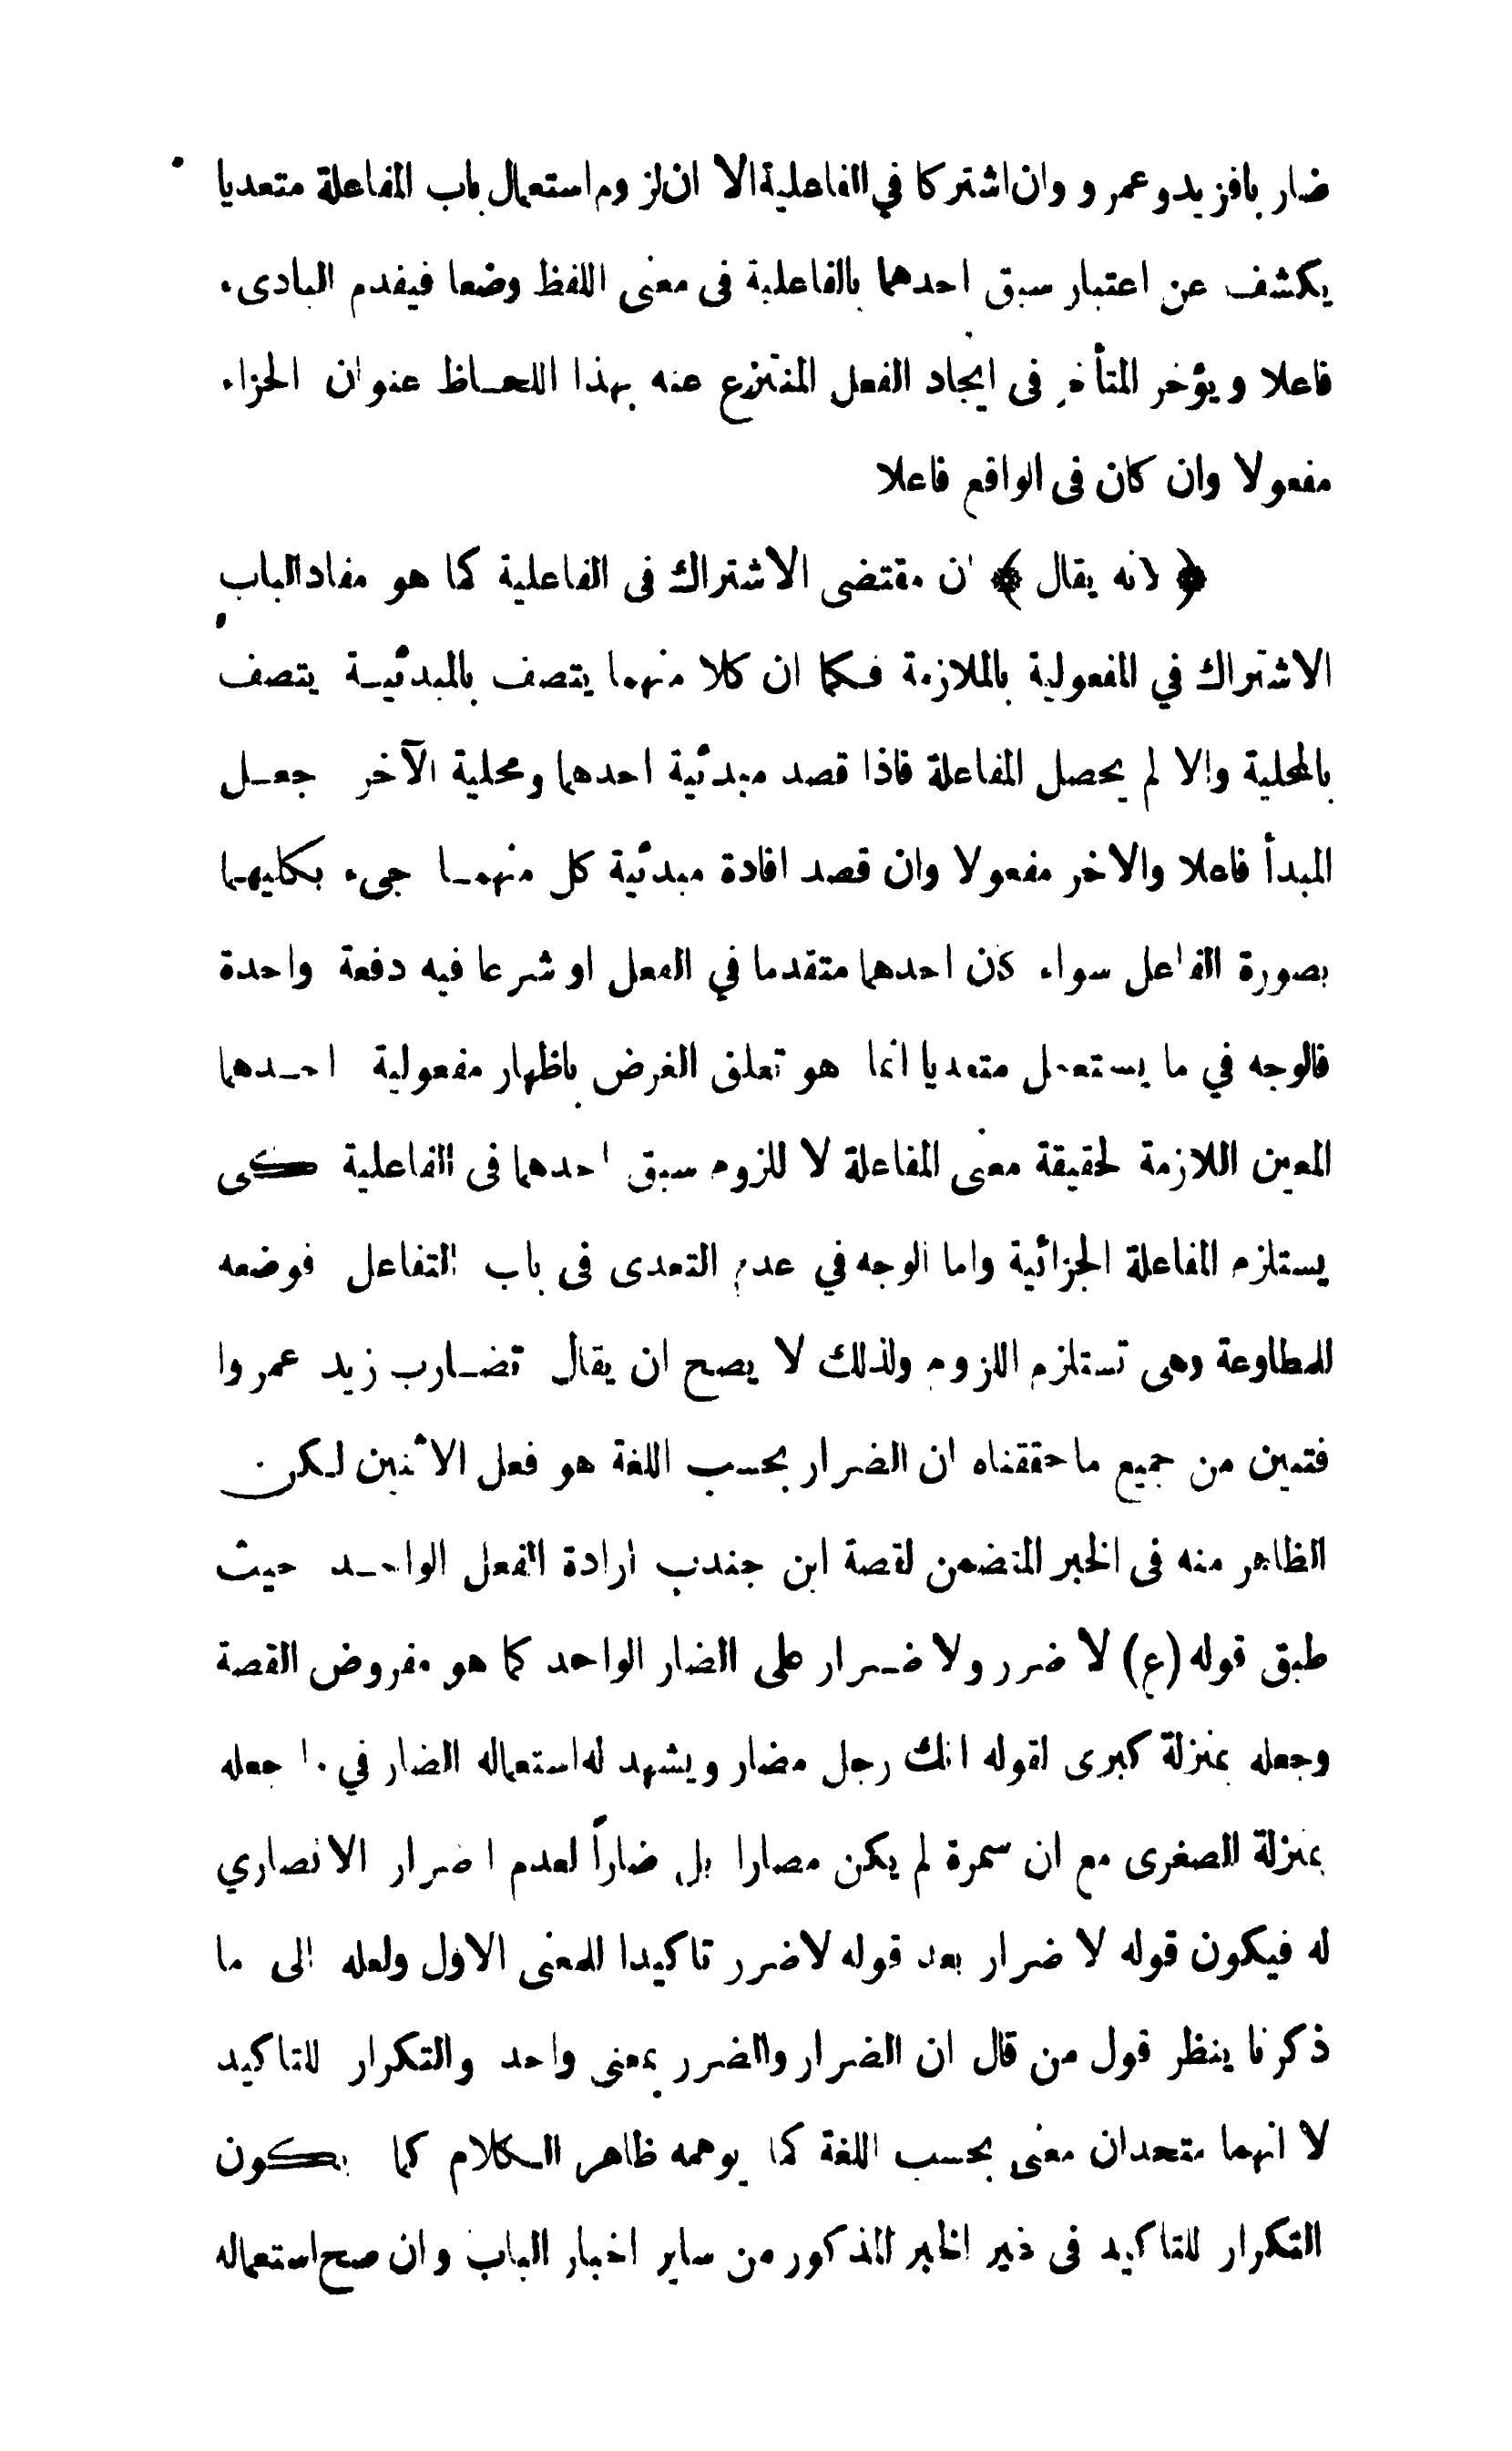 ضاربا فزيد وعمرو وان اشتركا في الفاعلية الا ان لزوم استعمال باب المفاعلة متعديا
يكشف عن اعتبار سبق احدهما بالفاعلية فى معنى اللفظ وضعا فيقدم البادىء
فاعلا ويؤخر المتأخر فى ايجاد الفعل المنتزع عنه بهذا اللحاظ عنوان الجزاء
مفعولا وان كان فى الواقع فاعلا
﴿ لانه يقال ﴾ ان مقتضى الاشتراك فى الفاعلية كما هو مفاد الباب
الاشتراك في المفعولية بالملازمة فكما ان كلا منهما يتصف بالمبدئية يتصف
بالمحلية والا لم يحصل المفاعلة فاذا قصد مبدئية احدهما ومحلية الآخر جعل
المبدأ فاعلا والاخر مفعولا وان قصد افادة مبدئية كل منهما جىء بكليهما
بصورة الفاعل سواء كان احدهما متقدما في الفعل او شرعا فيه دفعة واحدة
فالوجه في ما يستعمل متعديا انما هو تعلق الغرض باظهار مفعولية احدهما
المعين اللازمة لحقيقة معنى المفاعلة لا للزوم سبق احدهما فى الفاعلية كى
يستلزم المفاعلة الجزائية واما الوجه في عدم التعدى فى باب التفاعل فوضعه
للمطاوعة وهى تستلزم اللزوم ولذلك لا يصح ان يقال تضارب زيد عمروا
فتبين من جميع ما حققناه ان الضرار بحسب اللغة هو فعل الاثنين لكن
الظاهر منه فى الخبر المتضمن لقصة ابن جندب ارادة الفعل الواحد حيث
طبق قوله (ع) لا ضرر ولا ضرار على الضار الواحد كما هو مفروض القصة
وجعله بمنزلة كبرى لقوله انك رجل مضار ويشهد له استعماله الضار في ما جعله
بمنزلة الصغرى مع ان سمرة لم يكن مضارا بل ضاراً لعدم اضرار الانصاري
له فيكون قوله لا ضرار بعد قوله لاضرر تاكيدا للمعنى الاول ولعله الى ما
ذكرنا ينظر قول من قال ان الضرار والضرر بمعنى واحد والتكرار للتاكيد
لا انهما متحدان معنى بحسب اللغة كما يوهمه ظاهر الكلام كما يكون
التكرار للتاكيد فى غير الخبر المذكور من ساير اخبار الباب وان صح استعماله